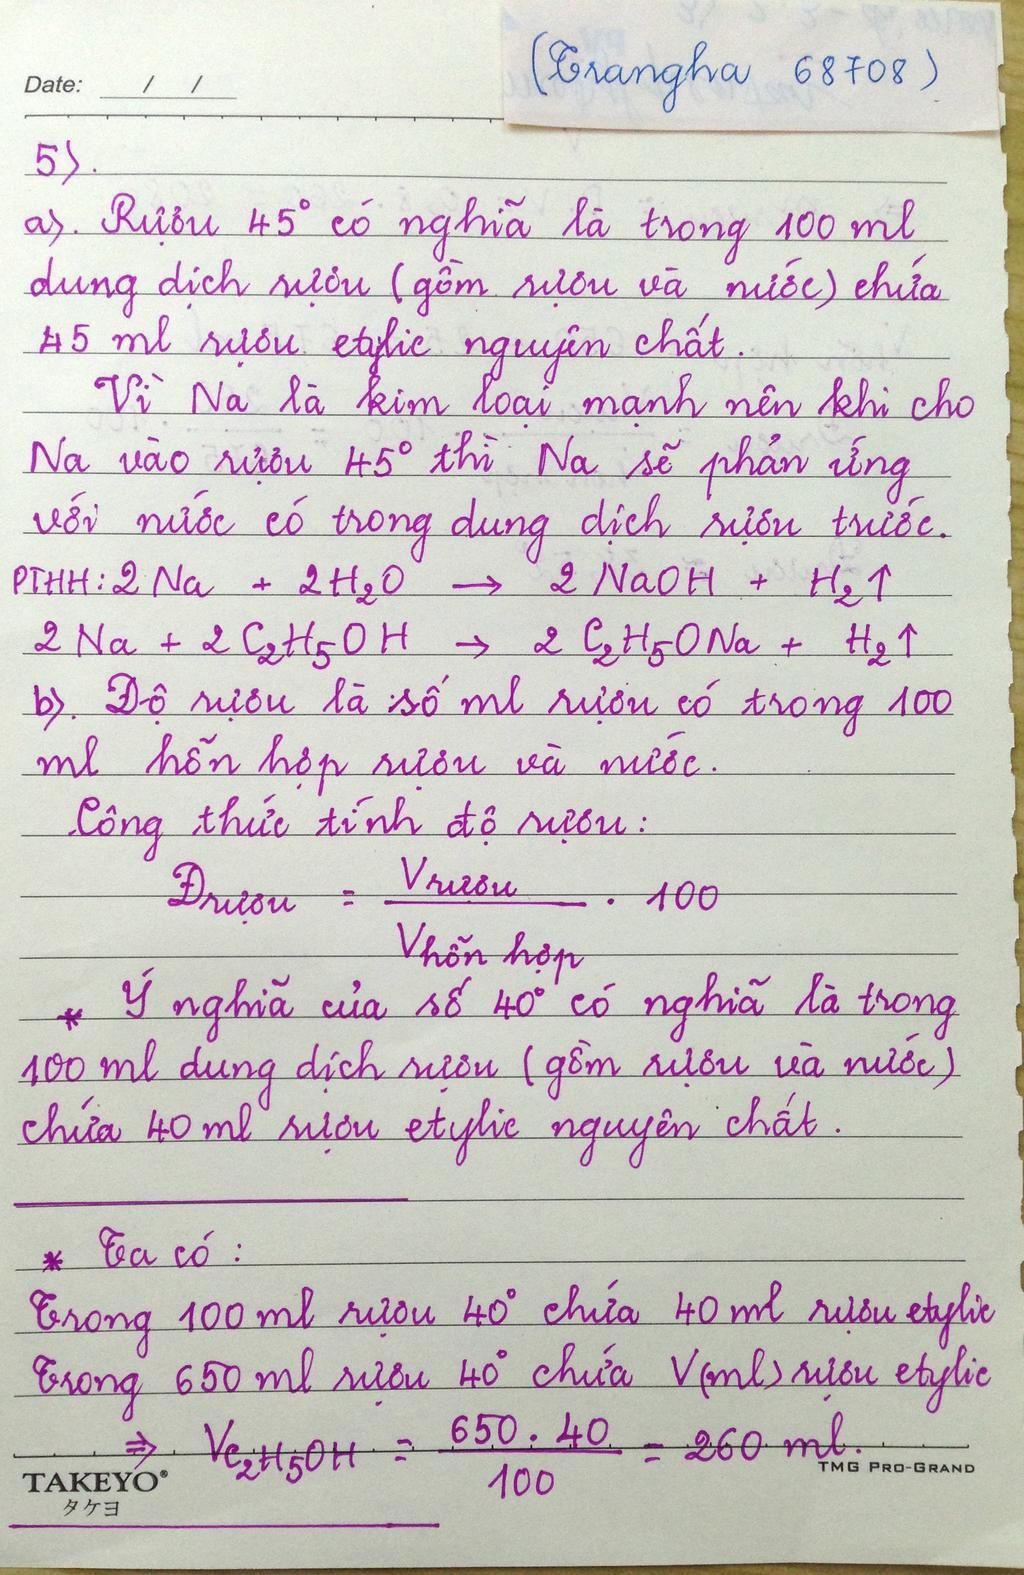 (Trangha 68708)
Date: / /
5).
a). Rượu 45° có nghĩa là trong 100 ml
dung dịch rượu (gồm rượu và nước) chứa
45 ml rượu etylic nguyên chất.
Vì Na là kim loại mạnh nên khi cho
Na vào rượu 45° thì Na sẽ phản ứng
với nước có trong dung dịch rượu trước.
PTHH: 2 Na + 2 H₂O → 2 NaOH + H₂↑
2 Na + 2 C₂H₅OH → 2 C₂H₅ONa + H₂↑
b). Độ rượu là số ml rượu có trong 100
ml hỗn hợp rượu và nước.
Công thức tính độ rượu:
Đrượu = Vrượu / Vhỗn hợp . 100
* Ý nghĩa của số 40° có nghĩa là trong
100 ml dung dịch rượu (gồm rượu và nước)
chứa 40 ml rượu etylic nguyên chất.
* Ta có:
Trong 100 ml rượu 40° chứa 40 ml rượu etylic
Trong 650 ml rượu 40° chứa V(ml) rượu etylic
⇒ VC₂H₅OH = 650 . 40 / 100 = 260 ml.
TAKEYO®
タケヨ
TMG PRO-GRAND